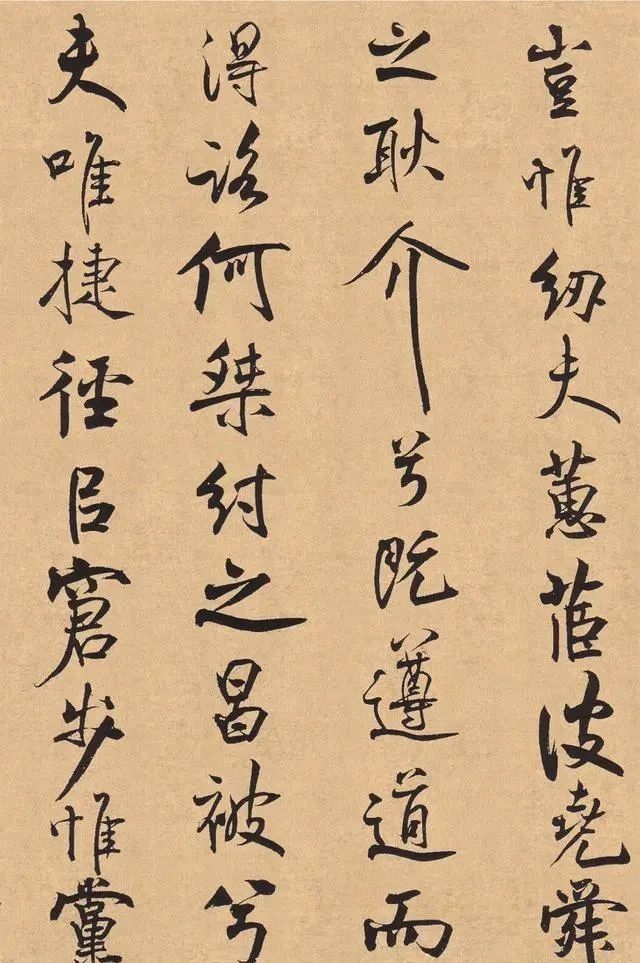 豈惟紉夫蕙茞彼堯舜
之耿介兮既遵道而
得路何桀紂之昌被兮
夫唯捷徑㠯窘步惟黨